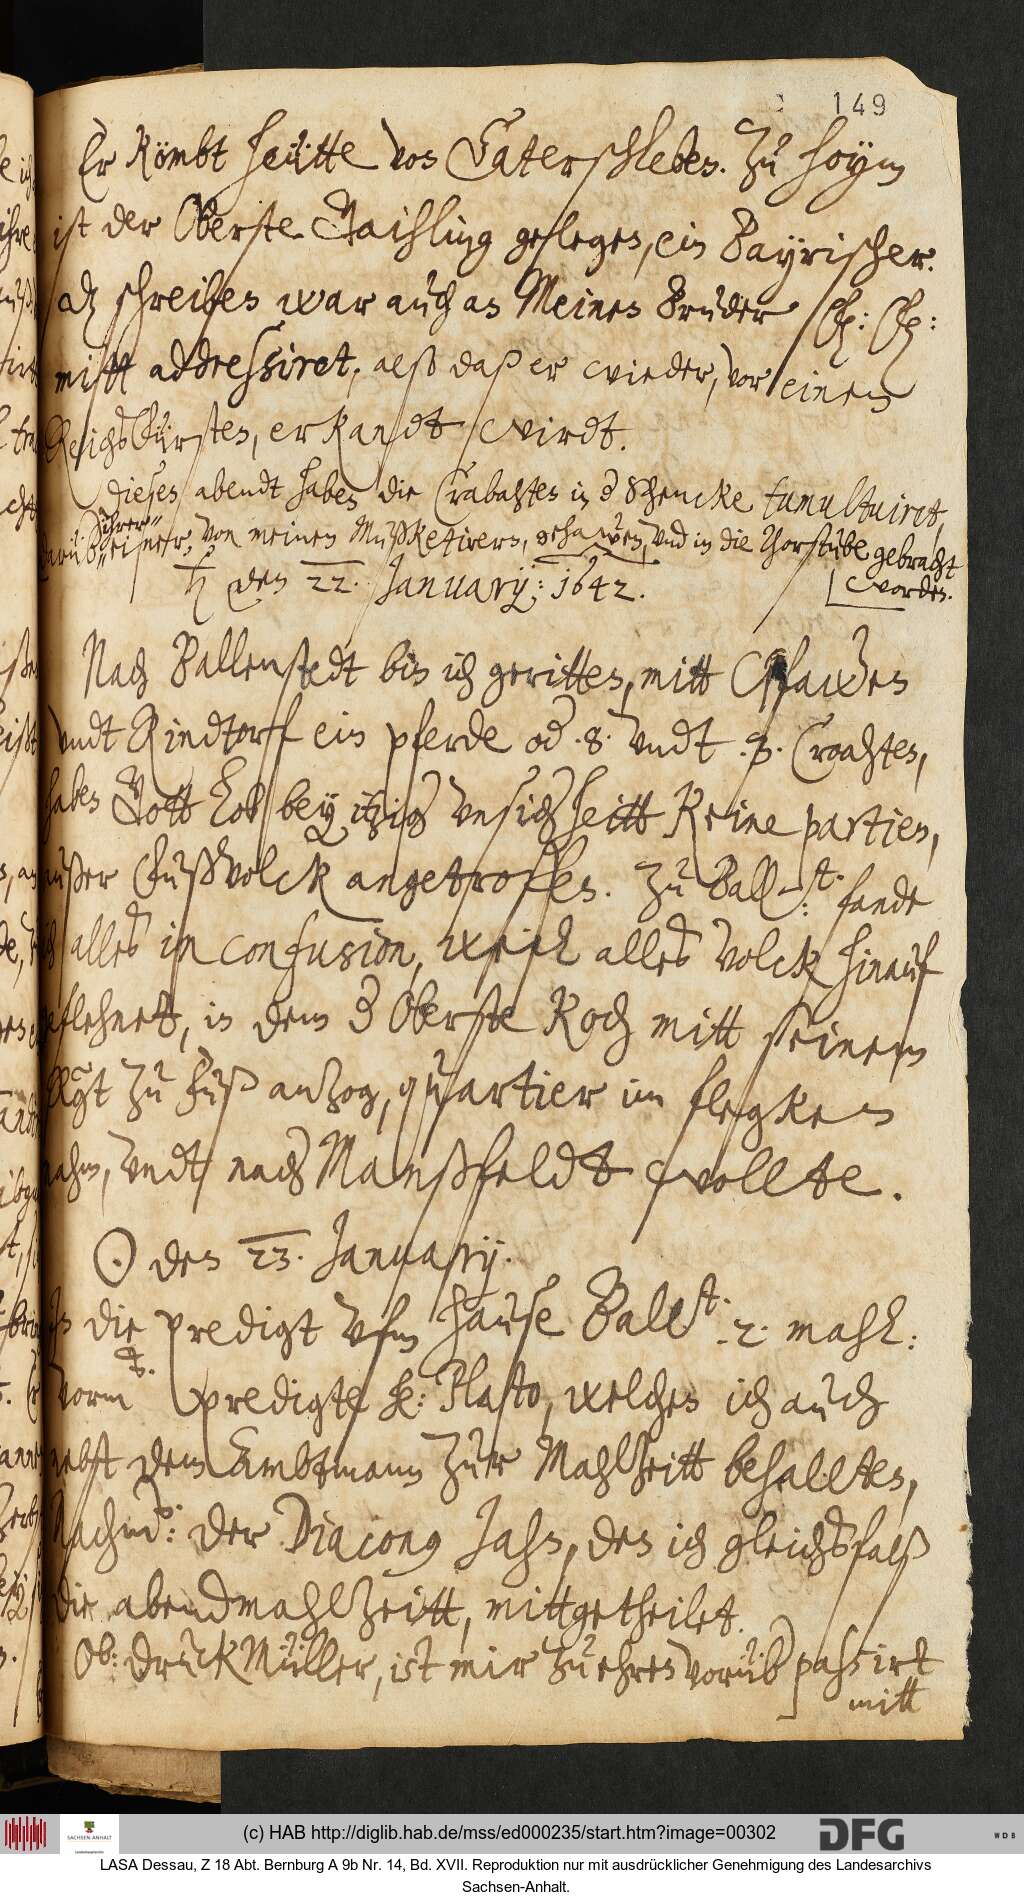 149
Er kömbt heütte von Gaterschleben. Zu Hoym
ist der Oberste Gaißling gelegen, ein Bayrischer.
Daß schreiben war auch an Meinen Bruder F: F:
mitt addressiret, alß daß er wieder, vor einen
ReichsFürsten, erkandt wirdt.
Dieses abendt haben die Crabahten in der Schencke tumultuiret,
darüber ihrer einer, von meinen Mußketirern, gehawen, vnd in die Thorstube gebracht
worden.
♄ den 22. January: 1642.
Nach Ballenstedt bin ich geritten, mitt Pfawen
vndt Rindtorff ein pferde oder 8. vndt 3. Croahten,
haben Gott lob bey itzig vnsicherheitt keine partien,
außer Fußvolck angetroffen. Zu Ball st: fandt
ich alles in confusion, weil alles volck hinauf
geflehnet, in dem der Oberste Koch mitt seinem
Rgt zu Fuß anzog, quartier im flegken
nahm, vndt nach Manßfeldt wollte.
☉ den 23. January.
In die predigt vfm Hause Ball st. 2. mahl:
vorm t. predigte he: Plato, welchen ich auch
nebst dem Ambtmann zur Mahlzeitt behallten,
Nachm: der Diaconus Jahn, den ich gleichsfalß
die abendmahlzeitt, mittgetheilet.
Ob: Druckmüller, ist mir zu ehren vorüber passirt
mitt
(c) HAB http://diglib.hab.de/mss/ed000235/start.htm?image=00302
SACHSEN-ANHALT
DFG
WDB
LASA Dessau, Z 18 Abt. Bernburg A 9b Nr. 14, Bd. XVII. Reproduktion nur mit ausdrücklicher Genehmigung des Landesarchivs
Sachsen-Anhalt.